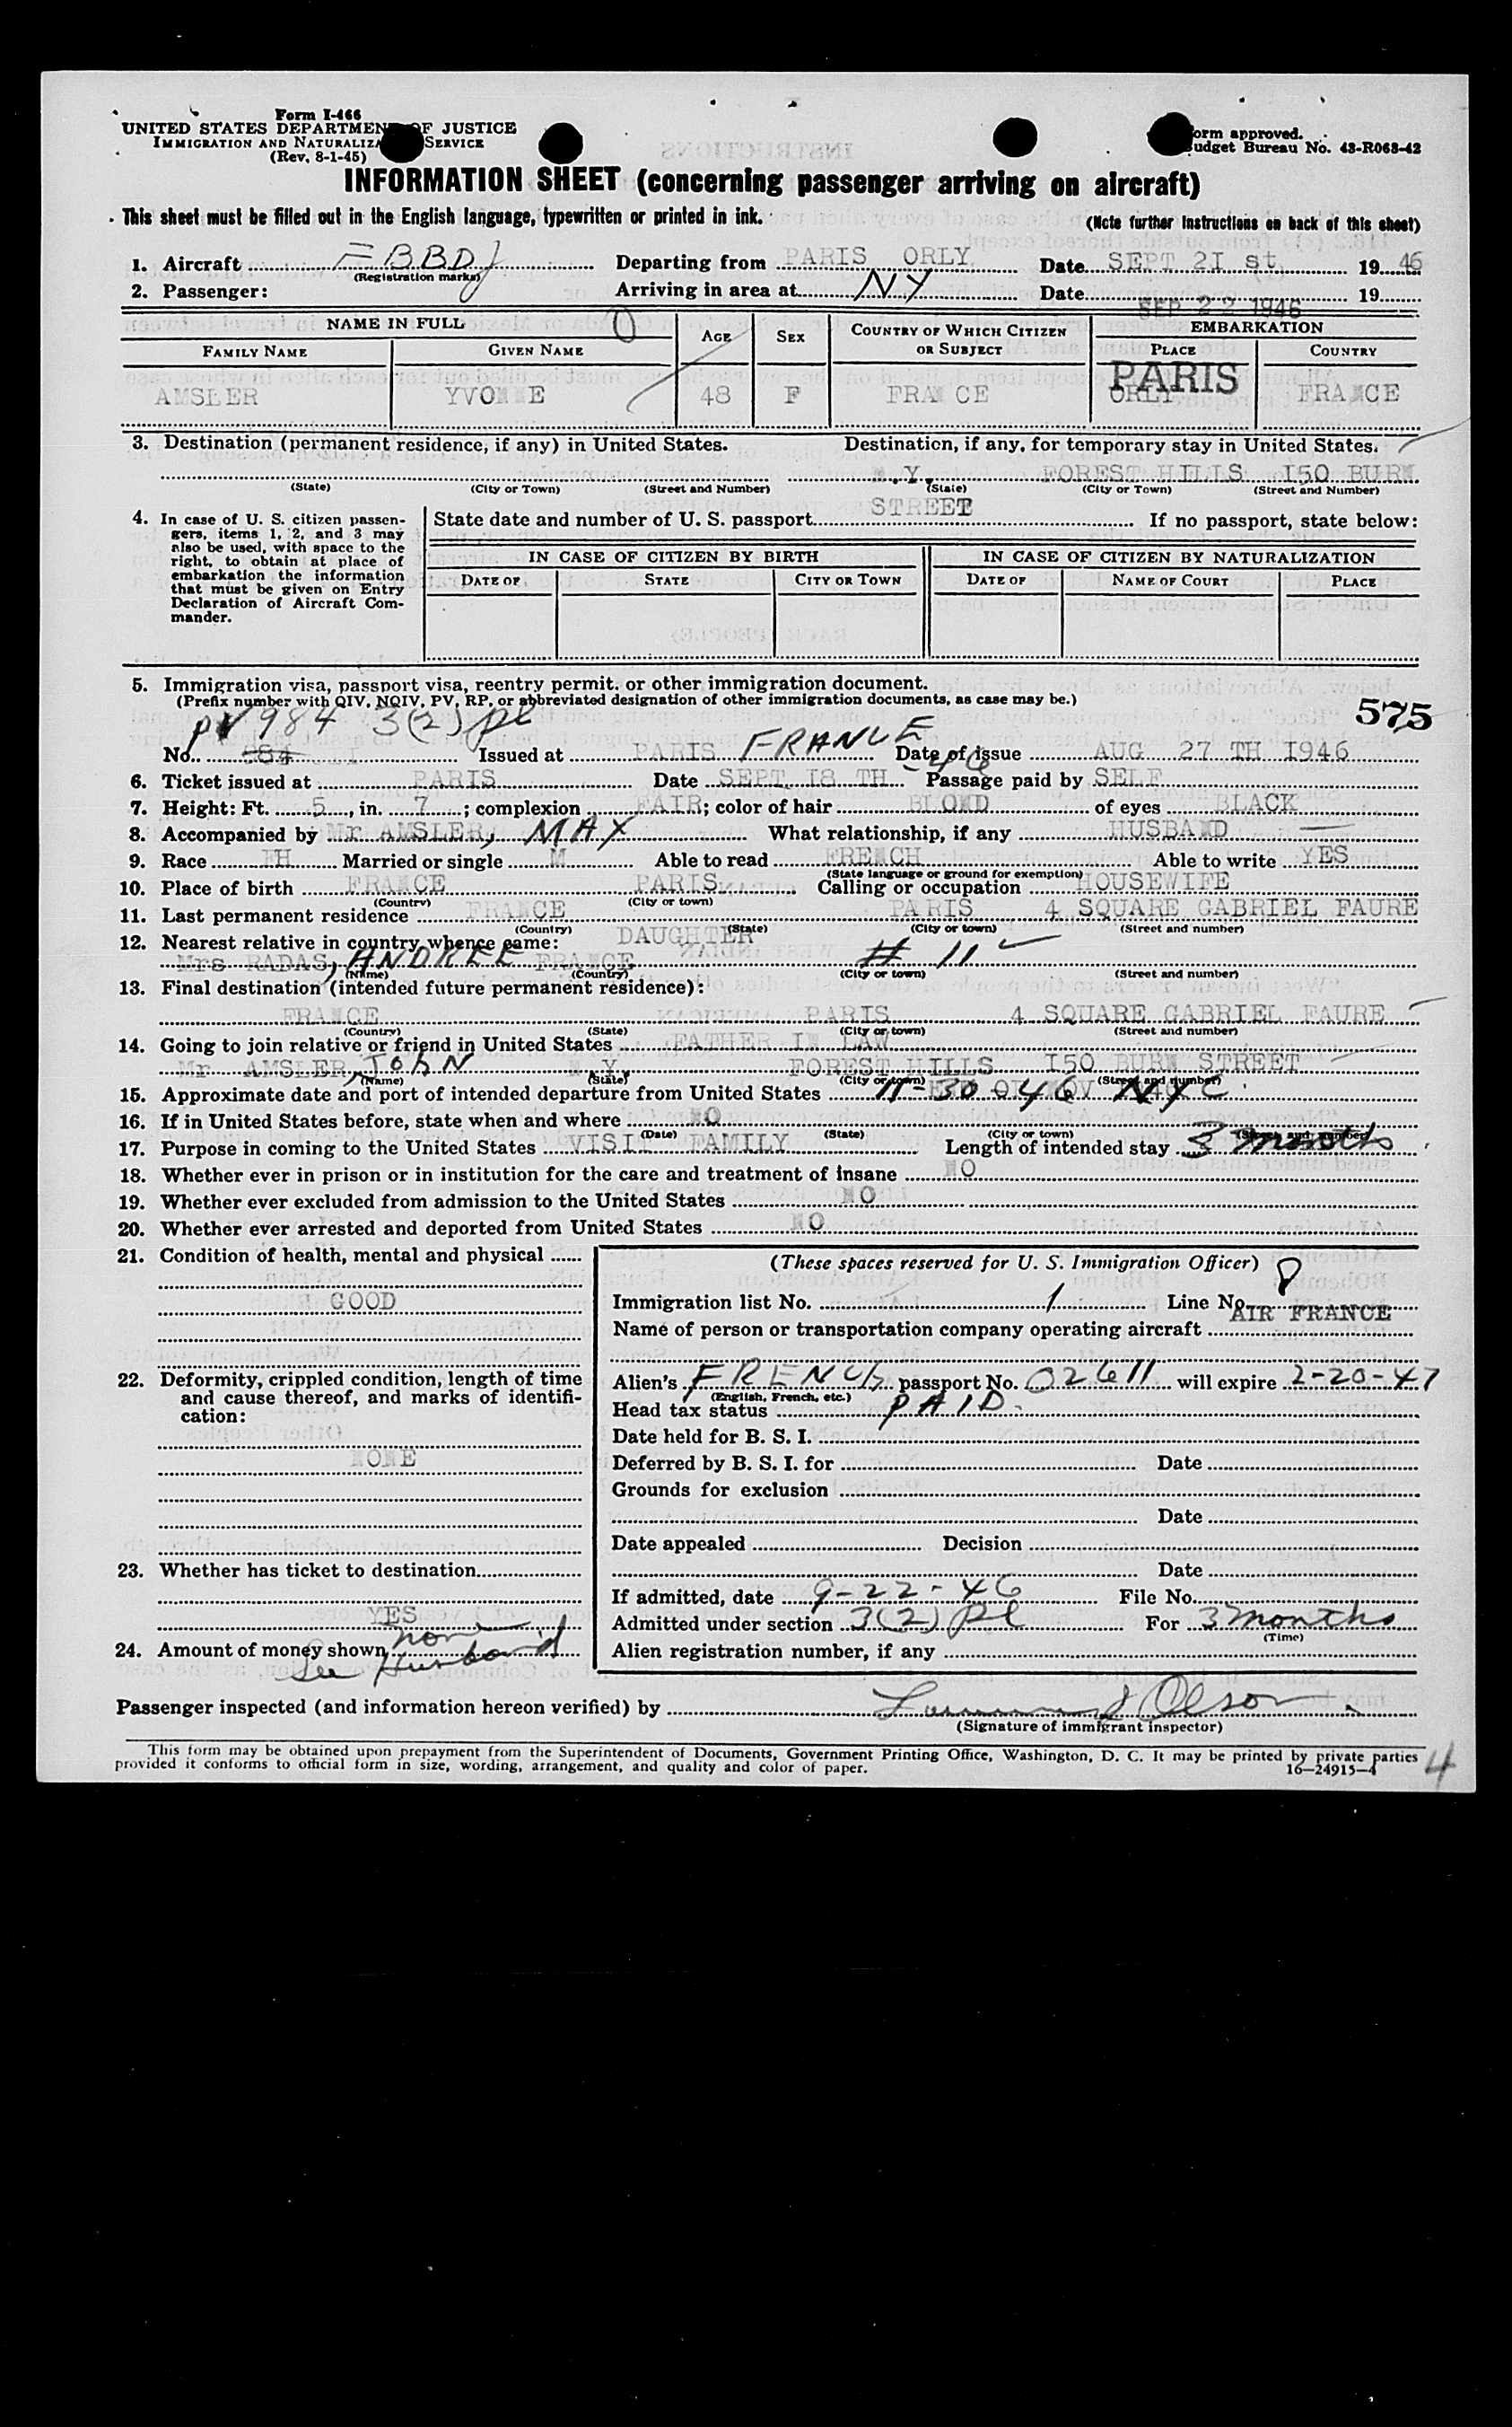 Form I-466
UNITED STATES DEPARTMENT OF JUSTICE
IMMIGRATION AND NATURALIZATION SERVICE
(Rev. 8-1-45)
Form approved.
Budget Bureau No. 43-R063-42
INFORMATION SHEET (concerning passenger arriving on aircraft)
This sheet must be filled out in the English language, typewritten or printed in ink.
(Note further instructions on back of this sheet)
1. Aircraft FBBDJ Departing from PARIS ORLY Date SEPT 2I st 19 46
(Registration marks)
2. Passenger: Arriving in area at NY Date SEP 22 1946 19
NAME IN FULL AGE SEX COUNTRY OF WHICH CITIZEN OR SUBJECT EMBARKATION
FAMILY NAME GIVEN NAME PLACE COUNTRY
AMSLER YVONNE 48 F FRANCE PARIS ORLY FRANCE
3. Destination (permanent residence, if any) in United States. Destination, if any, for temporary stay in United States.
N.Y. FOREST HILLS I50 BURN
(State) (City or Town) (Street and Number) (State) (City or Town) (Street and Number)
STREET
4. In case of U. S. citizen passengers, items 1, 2, and 3 may also be used, with space to the right, to obtain at place of embarkation the information that must be given on Entry Declaration of Aircraft Commander.
State date and number of U. S. passport If no passport, state below:
IN CASE OF CITIZEN BY BIRTH IN CASE OF CITIZEN BY NATURALIZATION
DATE OF STATE CITY OR TOWN DATE OF NAME OF COURT PLACE
5. Immigration visa, passport visa, reentry permit, or other immigration document.
(Prefix number with QIV, NQIV, PV, RP, or abbreviated designation of other immigration documents, as case may be.)
575
PV 984 3(2) pl
No. 984 Issued at PARIS FRANCE Date of issue AUG 27 TH I946
6. Ticket issued at PARIS Date SEPT I8 TH 46 Passage paid by SELF
7. Height: Ft. 5, in. 7; complexion FAIR; color of hair BLOND of eyes BLACK
8. Accompanied by Mr. AMSLER, MAX What relationship, if any HUSBAND
9. Race FH Married or single M Able to read FRENCH Able to write YES
(State language or ground for exemption)
10. Place of birth FRANCE PARIS Calling or occupation HOUSEWIFE
(Country) (City or town)
11. Last permanent residence FRANCE PARIS 4 SQUARE GABRIEL FAURE
(Country) (State) (City or town) (Street and number)
12. Nearest relative in country whence came: DAUGHTER
Mrs RADAS, ANDREE FRANCE # 11
(Name) (Country) (City or town) (Street and number)
13. Final destination (intended future permanent residence):
FRANCE PARIS 4 SQUARE GABRIEL FAURE
(Country) (State) (City or town) (Street and number)
14. Going to join relative or friend in United States FATHER IN LAW
Mr AMSLER, JOHN N Y. FOREST HILLS I50 BURN STREET
(Name) (State) (City or town) (Street and number)
15. Approximate date and port of intended departure from United States 11-30-46 NYC
16. If in United States before, state when and where NO
(Date) (State) (City or town) (Street and number)
17. Purpose in coming to the United States VISIT FAMILY Length of intended stay 3 months
18. Whether ever in prison or in institution for the care and treatment of insane NO
19. Whether ever excluded from admission to the United States NO
20. Whether ever arrested and deported from United States NO
21. Condition of health, mental and physical
GOOD
22. Deformity, crippled condition, length of time and cause thereof, and marks of identification:
NONE
23. Whether has ticket to destination
YES
24. Amount of money shown none
See Husband
(These spaces reserved for U. S. Immigration Officer)
Immigration list No. 1 Line No. 8
Name of person or transportation company operating aircraft AIR FRANCE
Alien's FRENCh passport No. 02611 will expire 2-20-47
(English, French, etc.)
Head tax status PAID.
Date held for B. S. I.
Deferred by B. S. I. for Date
Grounds for exclusion
Date
Date appealed Decision
Date
If admitted, date 9-22-46 File No.
Admitted under section 3(2) pl For 3 months
(Time)
Alien registration number, if any
Passenger inspected (and information hereon verified) by Olson
(Signature of immigrant inspector)
This form may be obtained upon prepayment from the Superintendent of Documents, Government Printing Office, Washington, D. C. It may be printed by private parties
provided it conforms to official form in size, wording, arrangement, and quality and color of paper.
16—24915-1
4